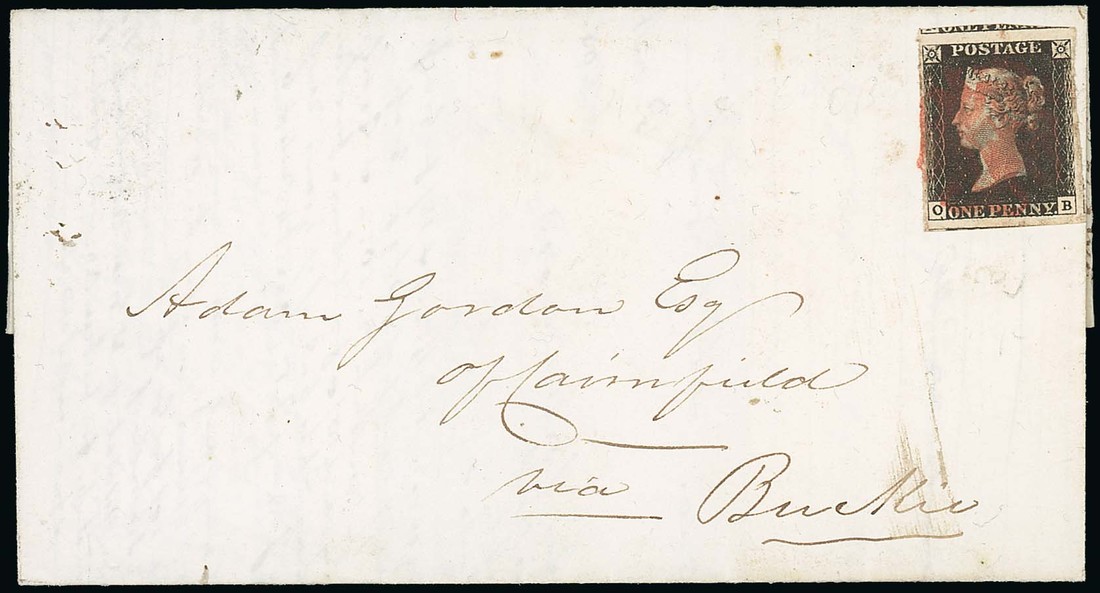 ONE PENN
POSTAGE
O ONE PENNY B
Adam Gordon Esq
of Cairnfield
via Buckie